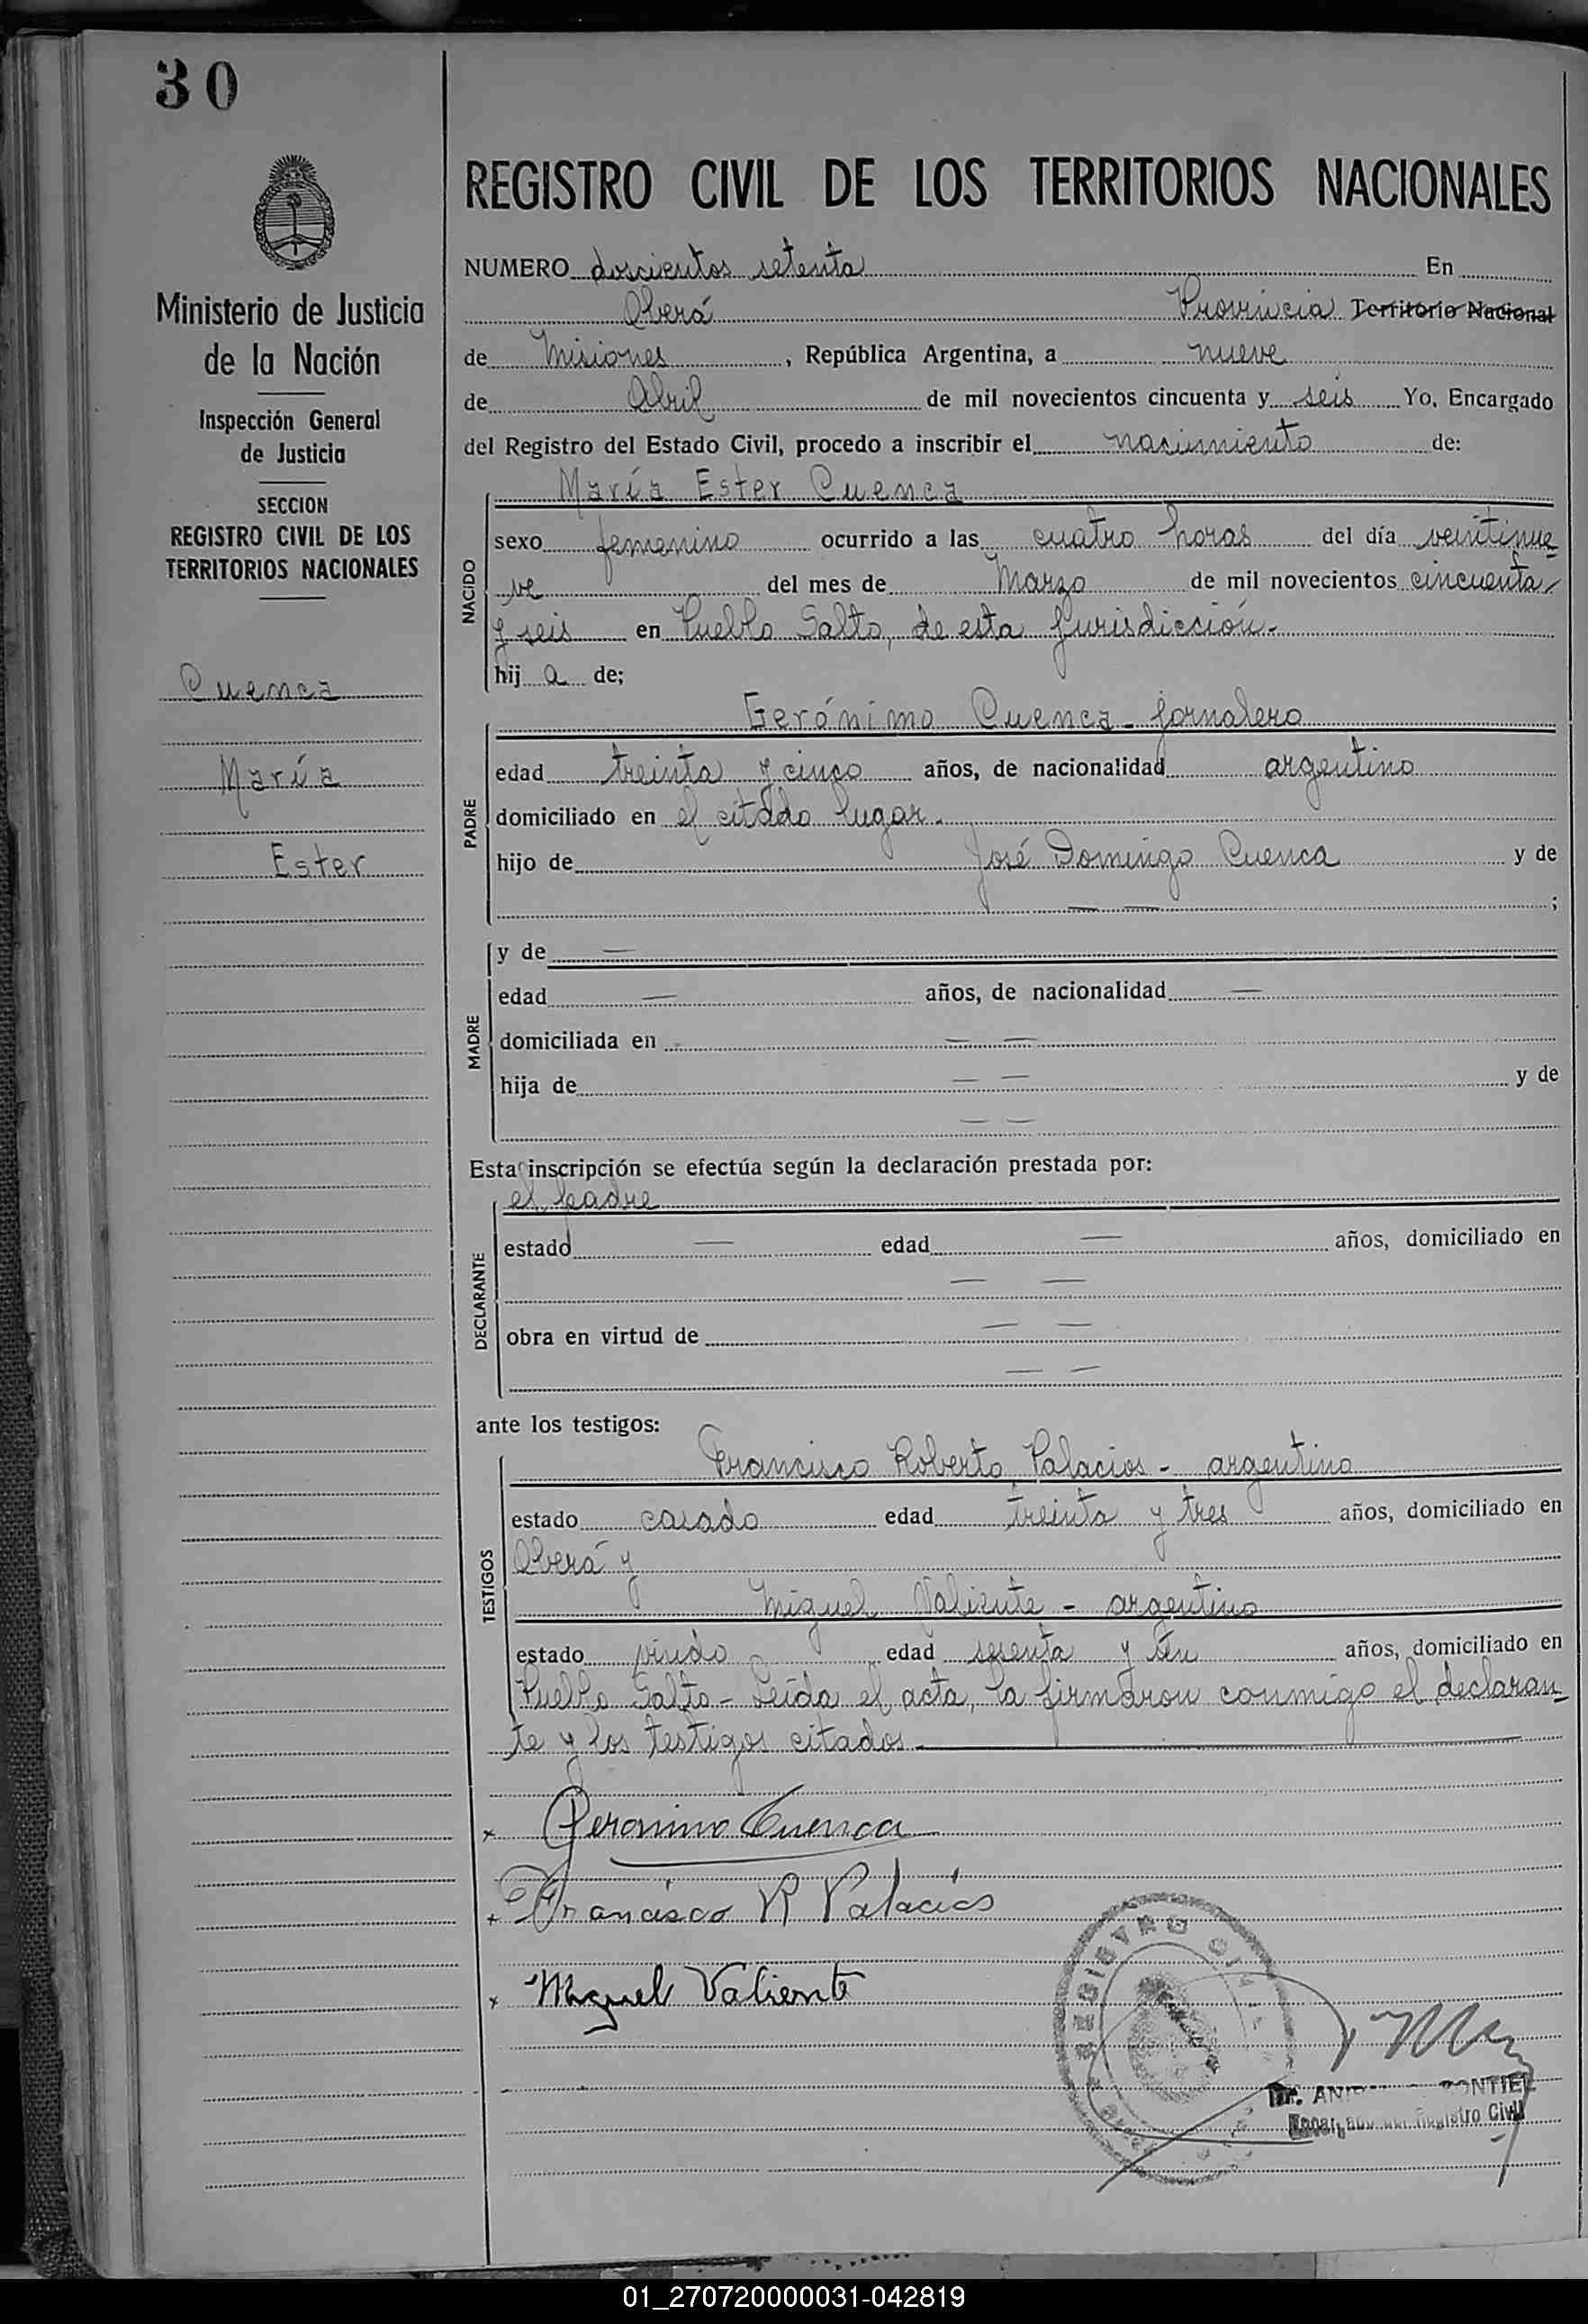 30
Ministerio de Justicia
de la Nación
Inspección General
de Justicia
SECCION
REGISTRO CIVIL DE LOS
TERRITORIOS NACIONALES
Cuenca
María
Ester
REGISTRO CIVIL DE LOS TERRITORIOS NACIONALES
NUMERO doscientos setenta En
Oberá Provincia Territorio Nacional
de Misiones, República Argentina, a nueve
de Abril de mil novecientos cincuenta y seis Yo, Encargado
del Registro del Estado Civil, procedo a inscribir el nacimiento de:
NACIDO
María Ester Cuenca
sexo femenino ocurrido a las cuatro horas del día veintinue=
ve del mes de Marzo de mil novecientos cincuenta
y seis en Pueblo Salto, de esta jurisdicción.-
hij a de;
PADRE
Gerónimo Cuenca - jornalero
edad treinta y cinco años, de nacionalidad argentino
domiciliado en el citado lugar.
hijo de José Domingo Cuenca y de
— — ;
MADRE
y de —
edad — años, de nacionalidad —
domiciliada en — —
hija de — — y de
— —
Esta inscripción se efectúa según la declaración prestada por:
DECLARANTE
el padre
estado — edad — años, domiciliado en
— —
obra en virtud de — —
— —
ante los testigos:
TESTIGOS
Francisco Roberto Palacios - argentino
estado casado edad treinta y tres años, domiciliado en
Oberá y
Miguel Valiente - argentino
estado viudo edad sesenta y un años, domiciliado en
Pueblo Salto - Leída el acta, la firmaron conmigo el declaran=
te y los testigos citados.
x Geronimo Cuenca
x Francisco R Palacios
x Miguel Valiente
REGISTRO
Dr.
Registro Civil
01_270720000031-042819